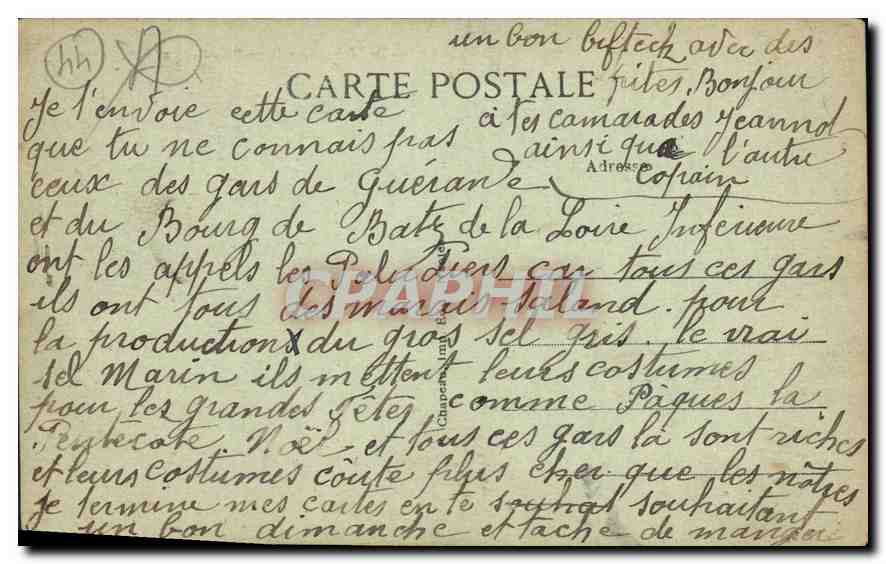 44
un bon bifteck avec des
CARTE POSTALE
frites. Bonjour
Je t'envoie cette carte
à tes camarades Jeannot
que tu ne connais pas
ainsi que l'autre
Adresse
copain
ceux des gars de Guérande
et du Bourg de Batz de la Loire Inférieure
ont les appels les Paludiers car tous ces gars
ils ont tous des marais saland. pour
la production du gros sel gris. le vrai
sel Marin ils mettent leurs costumes
pour les grandes Fêtes comme Pâques la
Pentecote Noël et tous ces gars la sont riches
et leurs costumes côute plus cher que les nôtres
je termine mes cartes en te souhat souhaitant
un bon dimanche et tache de manger
Chapeau, Imp. Ed.
CPAPHIL